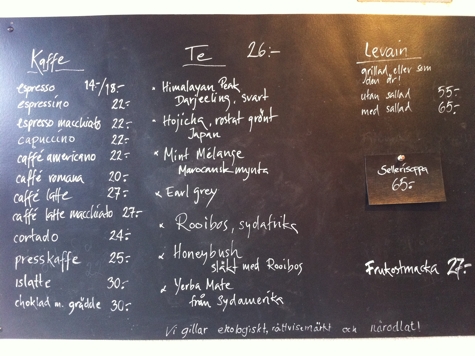 Kaffe
espresso 14-/18:-
espressino 22:-
espresso macchiato 22:-
capuccino 22:-
caffé americano 22:-
caffé romana 20:-
caffé latte 27:-
caffé latte macchiato 27:-
cortado 24:-
presskaffe 25:-
islatte 30:-
choklad m. grädde 30:-
Te 26:-
Himalayan Peak
Darjeeling, svart
Hojicha, rostat grönt
Japan
Mint Mélange
Marockansk mynta
Earl grey
Rooibos, sydafrika
Honeybush
släkt med Rooibos
Yerba Mate
från Sydamerika
Levain
grillad, eller som
den är!
utan sallad 55:-
med sallad 65:-
Sellerisoppa
65:-
Frukostmacka 27:-
Vi gillar ekologiskt, rättvisemärkt och närodlat!